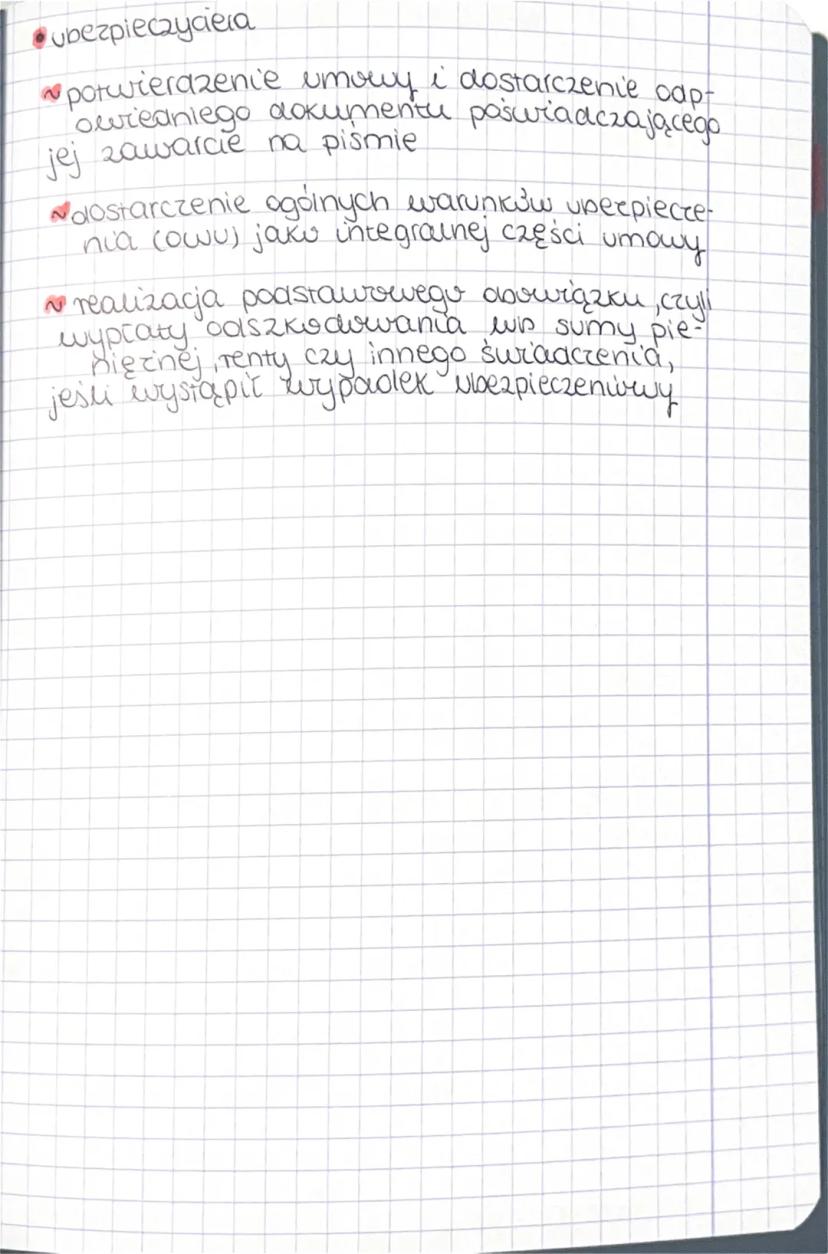 • ubezpieczyciela
~ potwierdzenie umowy i dostarczenie odp-
owiedniego dokumentu poświadczającego
jej zawarcie na piśmie
~ dostarczenie ogólnych warunków ubezpiecze-
nia (owu) jako integralnej części umowy
~ realizacja podstawowego obowiązku, czyli
wypłaty odszkodowania lub sumy pie-
niężnej, renty czy innego świadczenia,
jeśli wystąpił wypadek ubezpieczeniowy